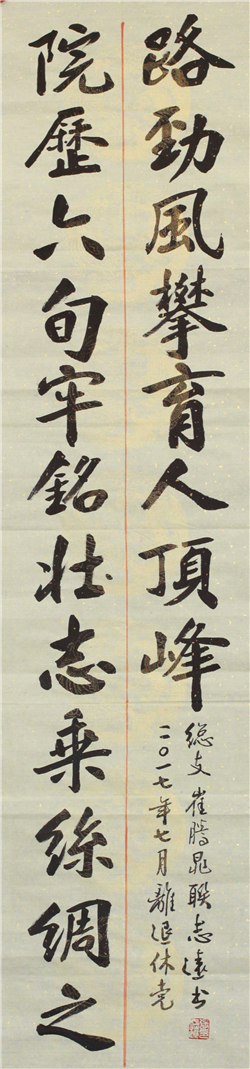 院歷六旬牢銘壯志乘絲綢之
路劲風攀育人頂峰
二〇一七年七月離退休党
総支 崔騰晁聯 志遠书